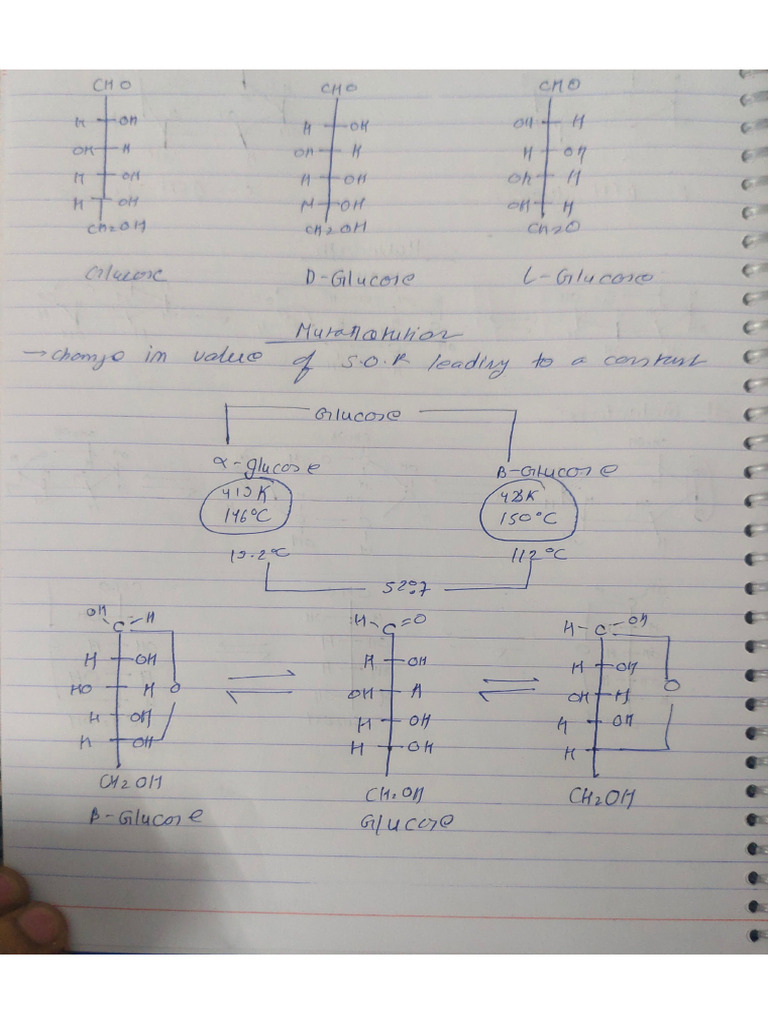 CHO CHO CHO
H OH H OH OH H
OH H OH H H OH
H OH H OH OH H
H OH H OH OH H
CH2OH CH2OH CH2O
Glucose D-Glucose L-Glucose
Mutarotation
→ change in value of S.O.R leading to a constant
Glucose
α-glucose β-Glucose
150°C
112°C
OH C H H-C=O H-C OH
H OH H OH H OH
HO H O OH H OH H O
H OH H OH H OH
H OH H OH H
CH2OH CH2OH CH2OH
β-Glucose Glucose